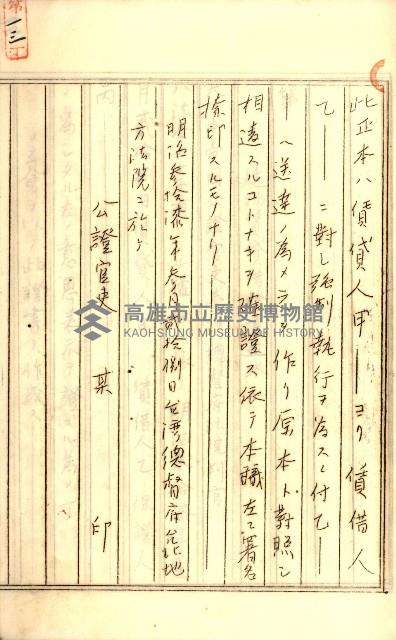 此正本ハ賃貸人甲――ヨリ賃借人
乙――ニ對シ強制執行ヲ為スニ付乙――
――ヘ送達ノ為メ之ヲ作リ原本ト對照シ
相違スルコトナキヲ確證ス依テ本職左ニ署名
捺印スルモノナリ
明治參拾漆年參月貳拾捌日台湾總督府台北地
方法院ニ於テ
公證官吏 某 印
高雄市立歷史博物館
KAOHSIUNG MUSEUM OF HISTORY